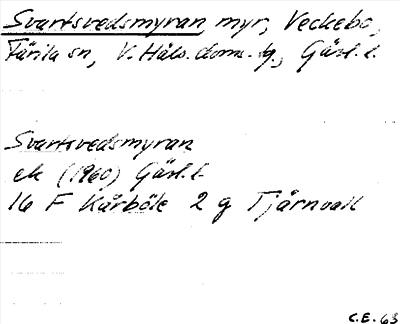 Svartsvedsmyran, myr, Veckebo,
Färila sn, V. Häls. doms. tg., Gävl. l.
Svartsvedsmyran
ek (1960) Gävl. l.
16 F Kårböle 2 g Tjärnvall
C.E. 63